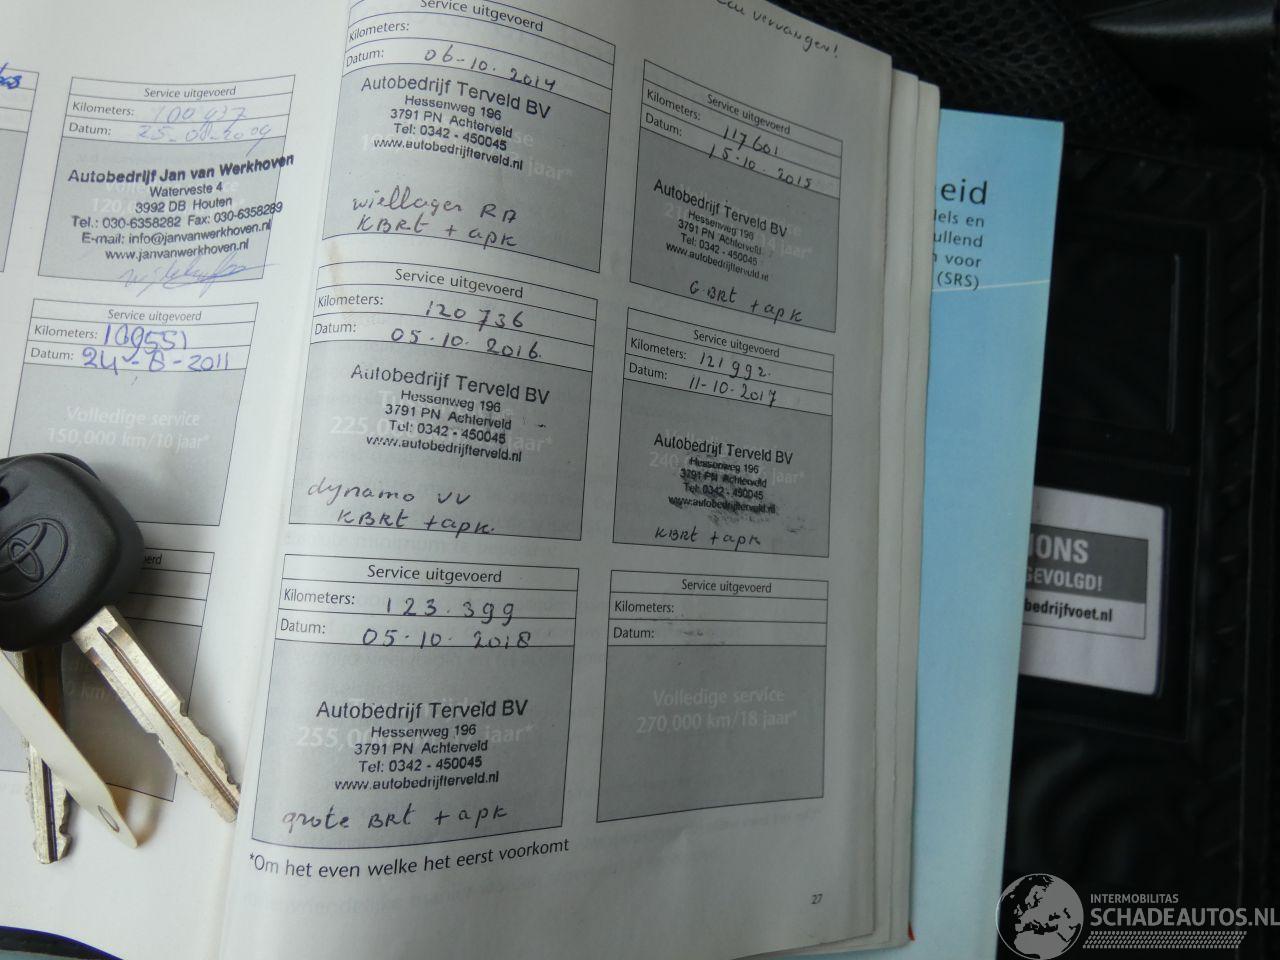 Service uitgevoerd
Kilometers: 100437
Datum: 25-08-2009
Autobedrijf Jan van Werkhoven
Waterveste 4
3992 DB Houten
Tel.: 030-6358282 Fax: 030-6358289
E-mail: info@janvanwerkhoven.nl
www.janvanwerkhoven.nl
Service uitgevoerd
Kilometers: 109551
Datum: 24-8-2011
Volledige service
150,000 km/10 jaar*
Service uitgevoerd
Kilometers:
Datum: 06-10.2014
Autobedrijf Terveld BV
Hessenweg 196
3791 PN Achterveld
Tel: 0342 - 450045
www.autobedrijfterveld.nl
jaar*
wiellager RA
KBRT + apk
Service uitgevoerd
Kilometers: 120736
Datum: 05.10.2016.
Autobedrijf Terveld BV
Hessenweg 196
3791 PN Achterveld
Tel: 0342 - 450045
www.autobedrijfterveld.nl
225,0
jaar*
dynamo VV
KBRT + apk.
Service uitgevoerd
Kilometers: 123.399
Datum: 05.10.2018
Autobedrijf Terveld BV
Hessenweg 196
3791 PN Achterveld
Tel: 0342 - 450045
www.autobedrijfterveld.nl
255,0
jaar*
grote BRT + apk
*Om het even welke het eerst voorkomt
vervangen!
Service uitgevoerd
Kilometers: 117601
Datum: 15.10.2015
Autobedrijf Terveld BV
Hessenweg 196
3791 PN Achterveld
Tel: 0342 - 450045
www.autobedrijfterveld.nl
G.BRT + apk
Service uitgevoerd
Kilometers: 121992.
Datum: 11-10.2017
Autobedrijf Terveld BV
Hessenweg 196
3791 PN Achterveld
Tel: 0342 - 450045
www.autobedrijfterveld.nl
KBRT + apk
Service uitgevoerd
Kilometers:
Datum:
Volledige service
270,000 km/18 jaar*
27
eid
dels en
ullend
n voor
(SRS)
IONS
GEVOLGD!
bedrijfvoet.nl
INTERMOBILITAS
SCHADEAUTOS.NL